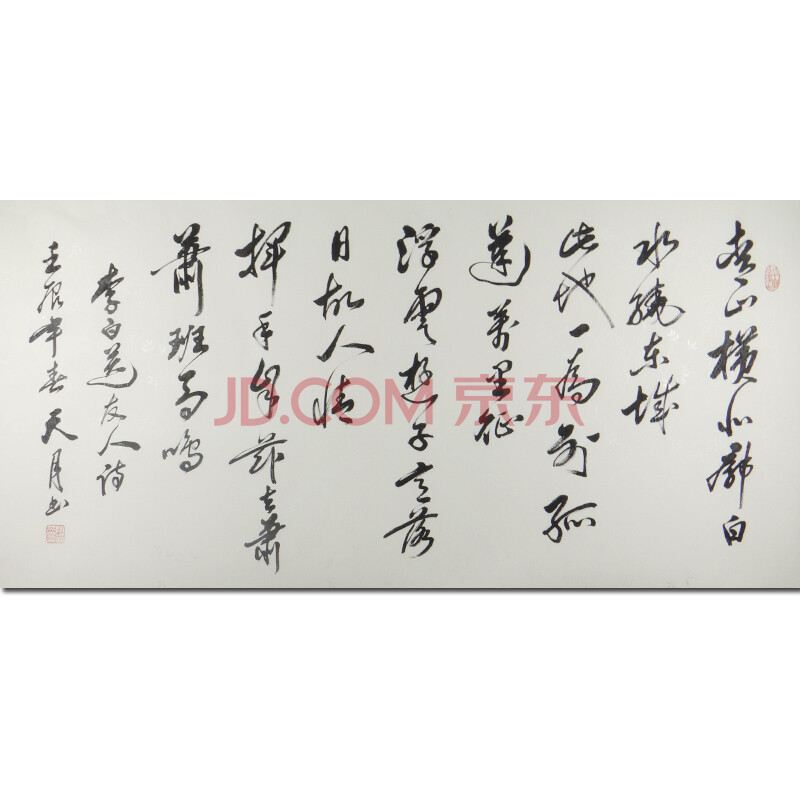 青山横北郭白
水繞东城
此地一為别孤
蓬萬里征
浮雲遊子意落
日故人情
揮手自兹去蕭
蕭班马鳴
李白送友人诗
壬辰年春天月书
JD.COM 京东